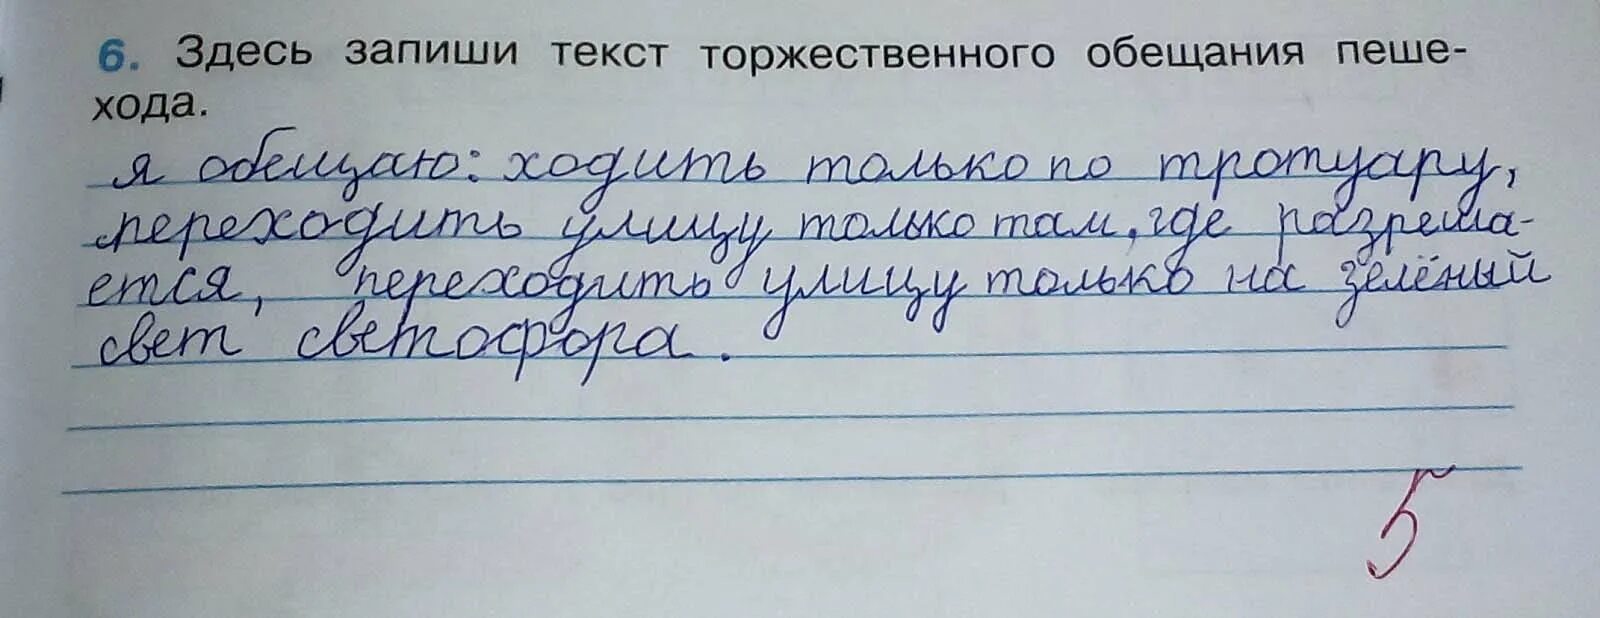 6. Здесь запиши текст торжественного обещания пеше-
хода.
я обещаю: ходить только по тротуару,
переходить улицу только там, где разреша-
ется, переходить улицу только на зелёный
свет светофора.
5